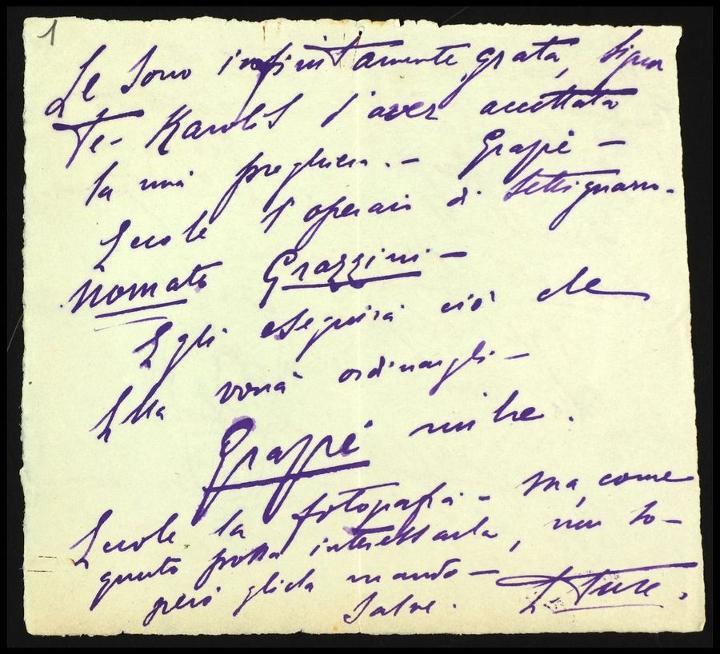 1
Le sono infinitamente grata, Signor
De Karolis d'aver accettata
la mia preghiera. — Grazie —
Eccole l'operaio di Settignano.
nomato Grazzini —
Egli eseguirà ciò che
Ella vorrà ordinargli —
Grazie mille.
Eccole la fotografia — ma, come
questo possa interessarla, non so —
però gliela mando —
Salve.